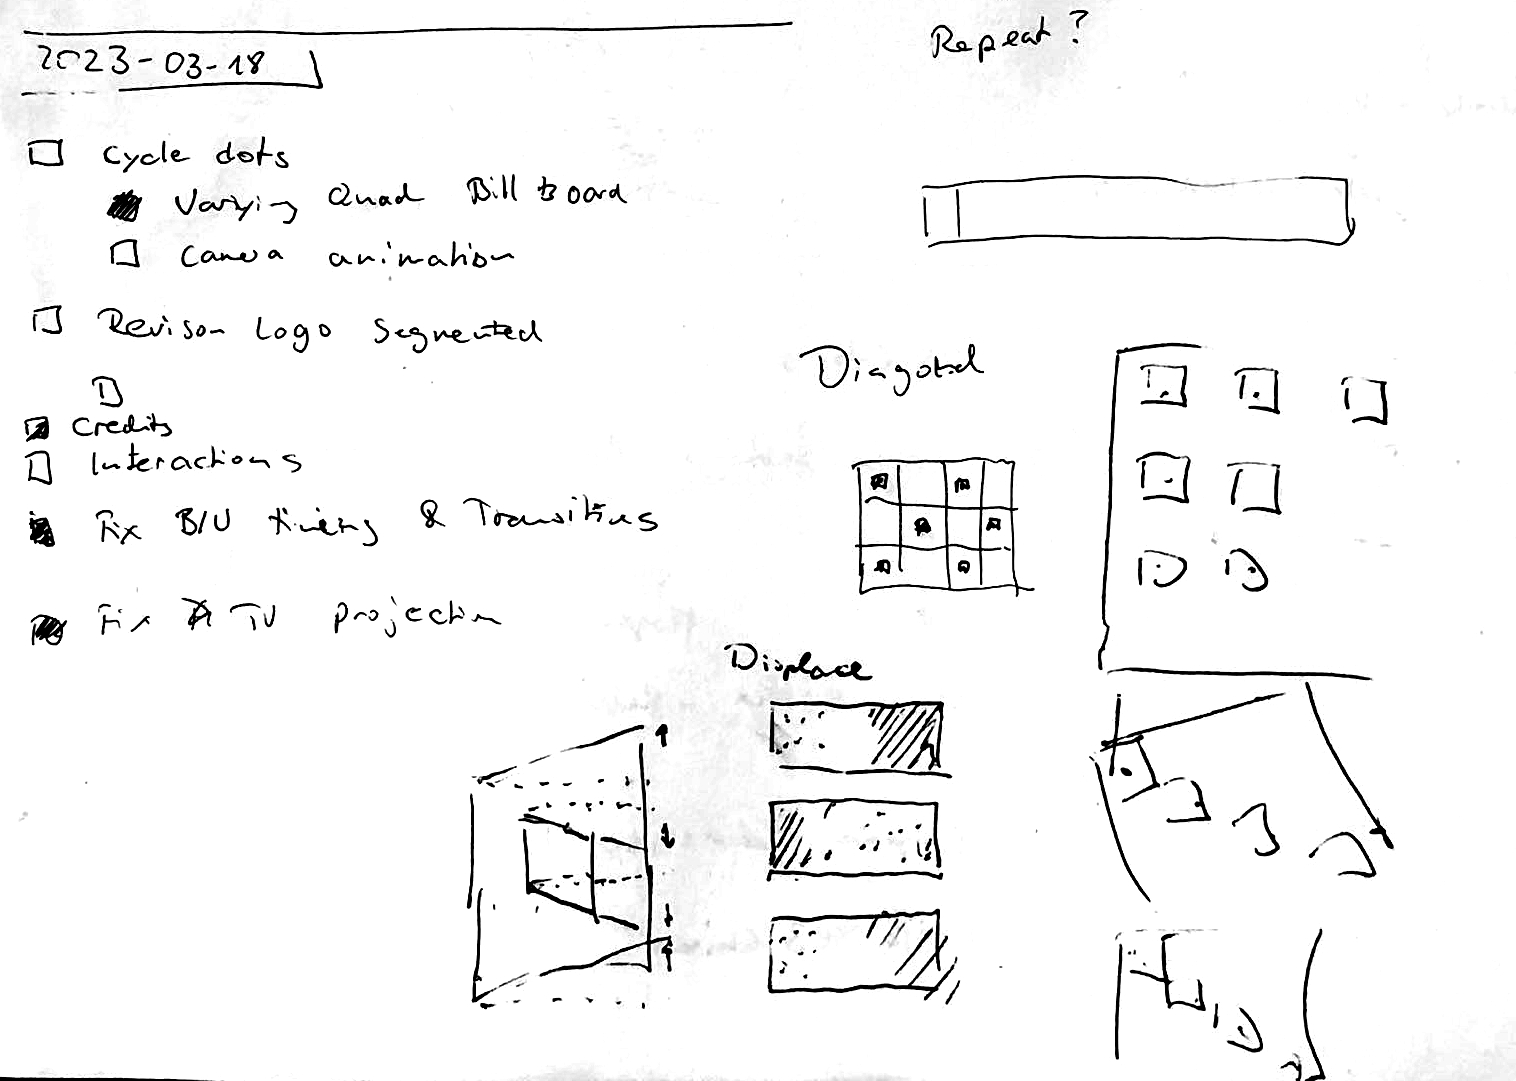 2023-03-18
Repeat?
Cycle dots
Varying Quad Billboard
Camera animation
Revison Logo Segmented
Credits
Interactions
Fix B/W timing & Transitions
Fix TV projection
Diagonal
Displace